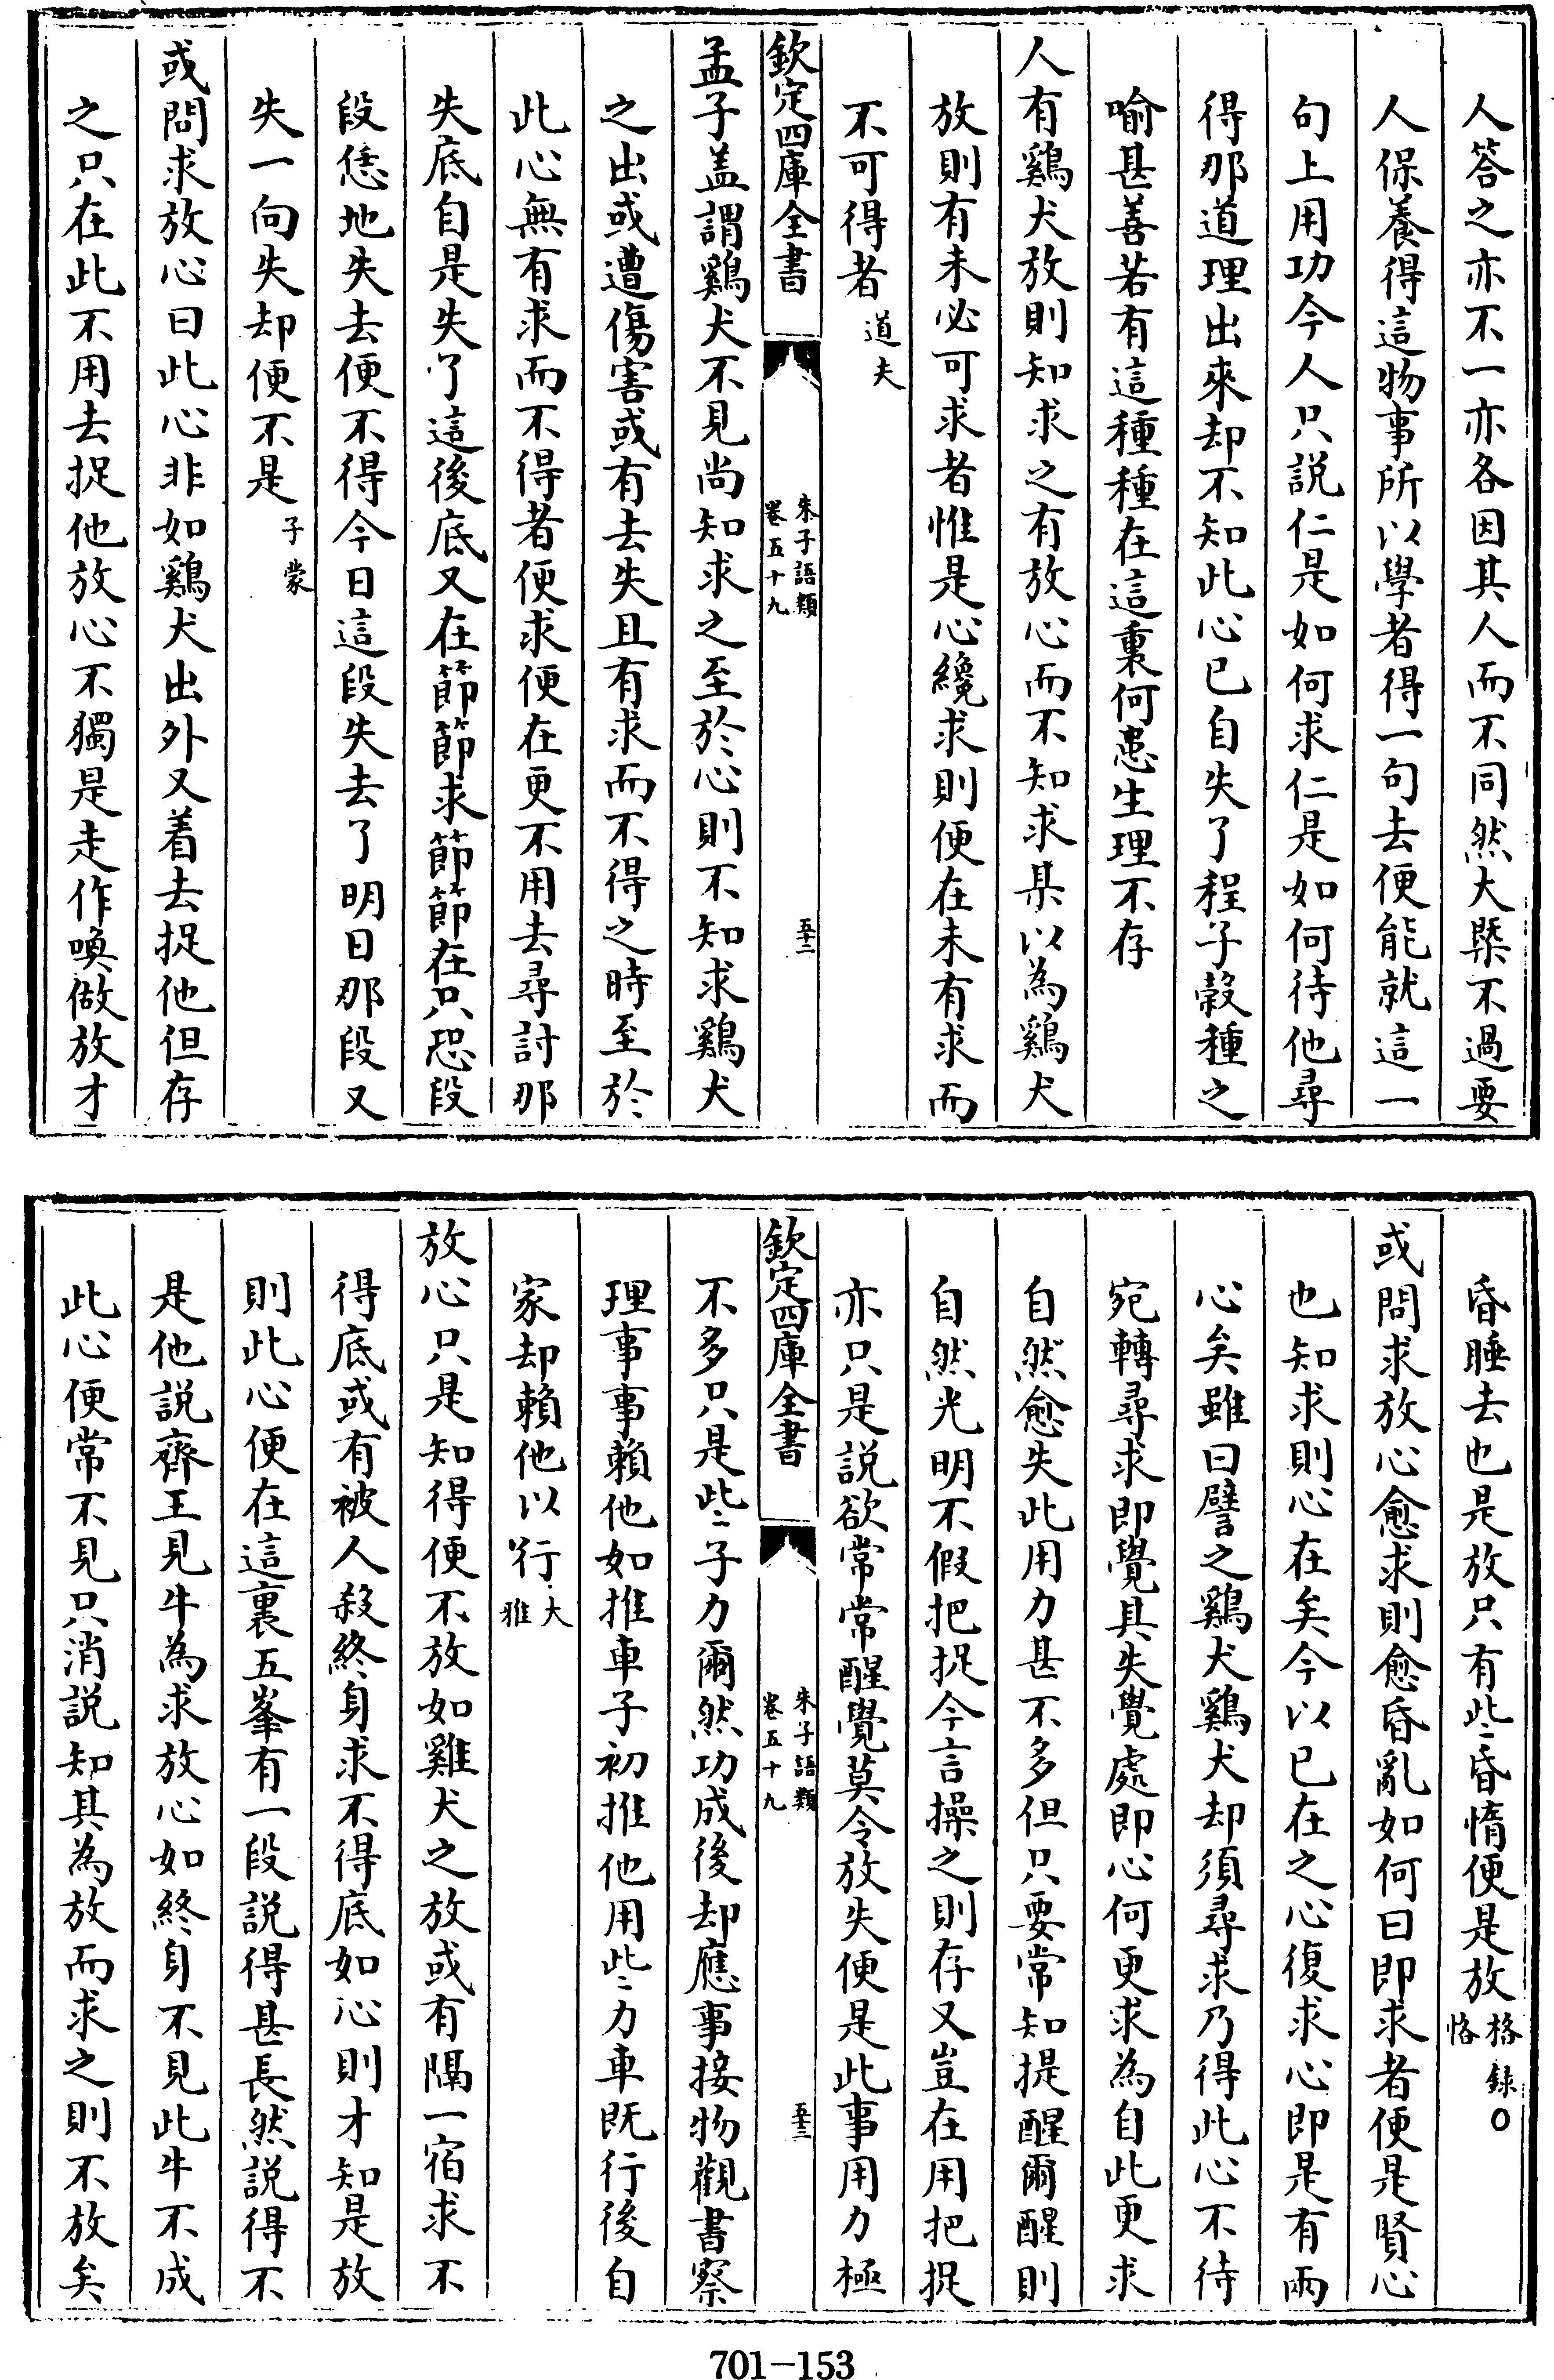 人答之亦不一亦各因其人而不同然大槩不過要
人保養得這物事所以學者得一句去便能就這一
句上用功今人只説仁是如何求仁是如何待他尋
得那道理出來却不知此心已自失了程子穀種之
喻甚善若有這種種在這裏何患生理不存
人有鷄犬放則知求之有放心而不知求某以為鷄犬
放則有未必可求者惟是心纔求則便在未有求而
不可得者道夫
欽定四庫全書
朱子語類
卷五十九
五十二
孟子盖謂鷄犬不見尚知求之至於心則不知求鷄犬
之出或遭傷害或有去失且有求而不得之時至於
此心無有求而不得者便求便在更不用去尋討那
失底自是失了這後底又在節節求節節在只恐段
段恁地失去便不得今日這段失去了明日那段又
失一向失却便不是子蒙
或問求放心曰此心非如鷄犬出外又着去捉他但存
之只在此不用去捉他放心不獨是走作喚做放才
昏睡去也是放只有些昏惰便是放恪格録○
或問求放心愈求則愈昏亂如何曰即求者便是賢心
也知求則心在矣今以已在之心復求心即是有兩
心矣雖曰譬之鷄犬鷄犬却須尋求乃得此心不待
宛轉尋求即覺其失覺處即心何更求為自此更求
自然愈失此用力甚不多但只要常知提醒爾醒則
自然光明不假把捉今言操之則存又豈在用把捉
亦只是説欲常常醒覺莫令放失便是此事用力極
欽定四庫全書
朱子語類
卷五十九
五十三
不多只是些子力爾然功成後却應事接物觀書察
理事事賴他如推車子初推他用些力車既行後自
家却賴他以行大雅
放心只是知得便不放如雞犬之放或有隔一宿求不
得底或有被人殺終身求不得底如心則才知是放
則此心便在這裏五峯有一段説得甚長然説得不
是他説齊王見牛為求放心如終身不見此牛不成
此心便常不見只消説知其為放而求之則不放矣
701-153